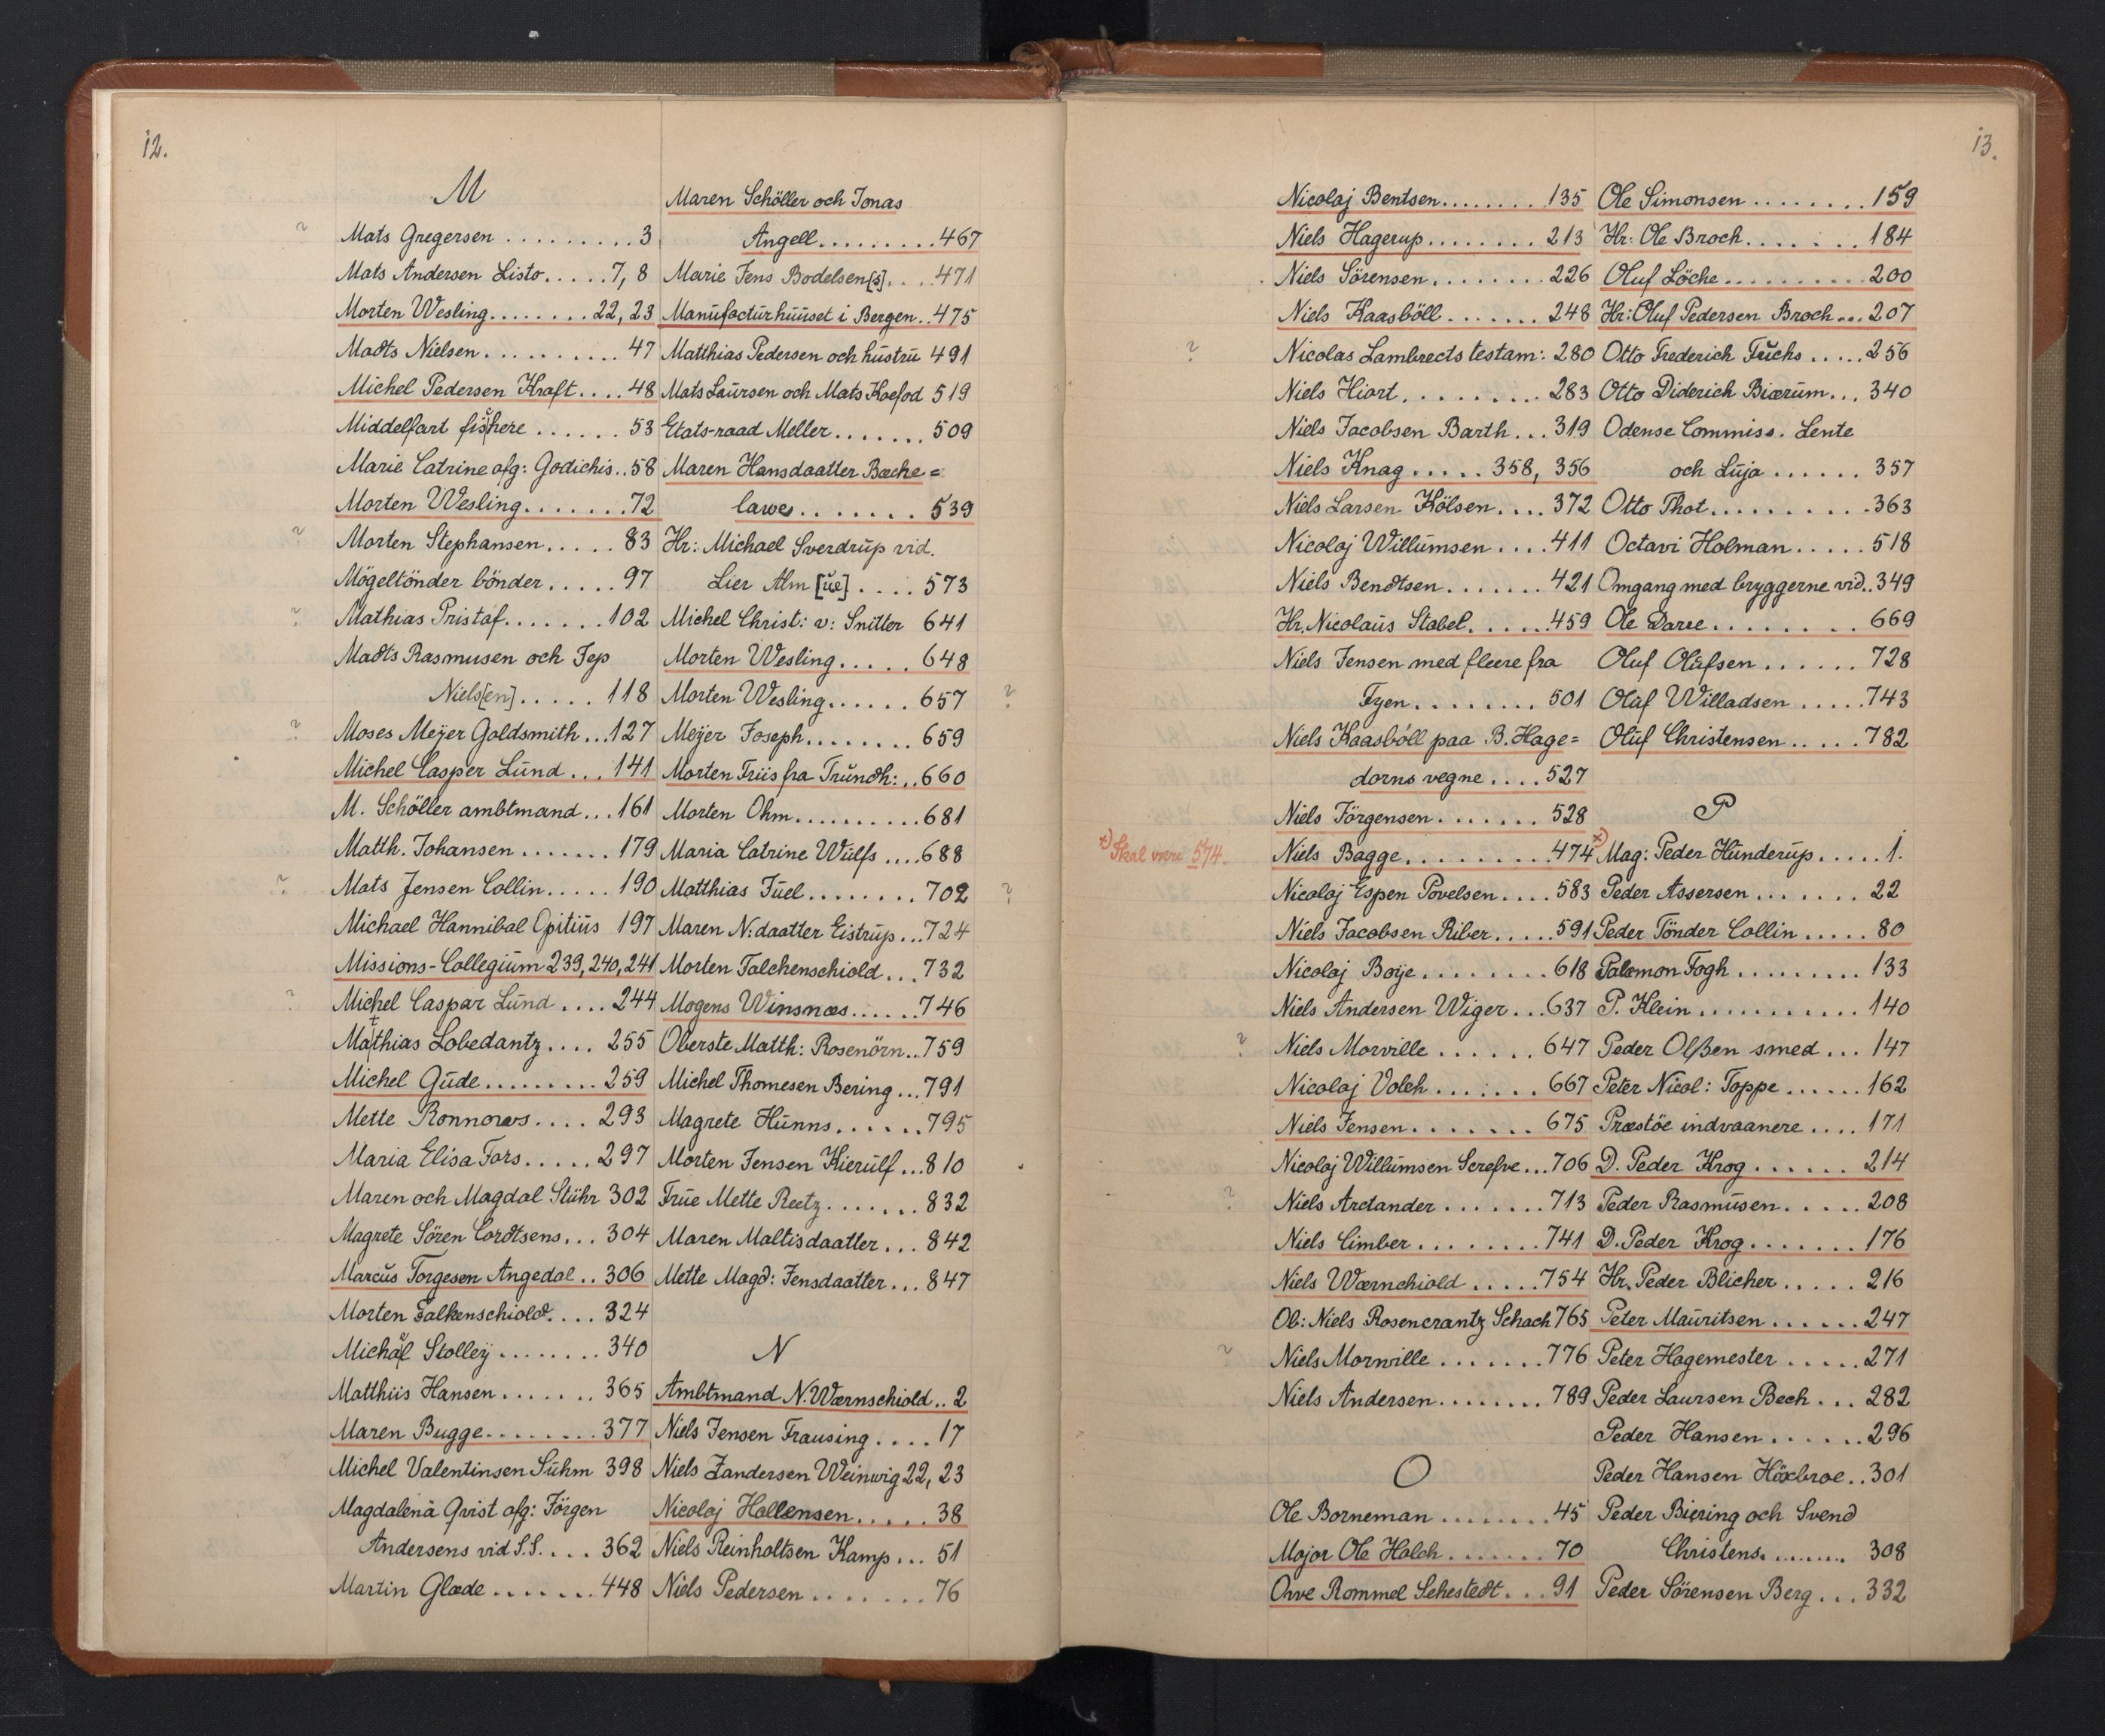 12.
M
Mats Gregersen . . . . . . . . . . 3
Mats Andersen Listo. . . . . 7, 8
Morten Wesling. . . . . . . . 22, 23
Madts Nielsen. . . . . . . . . . . 47
Michel Pedersen Kraft. . . . 48
Middelfart fischere . . . . . . 53
Marie Catrine afg: Godichis. . 58
Morten Wesling. . . . . . . 72
? Morten Stephansen. . . . . 83
Mögeltönder bönder. . . . . 97
? Mathias Pristaf. . . . . . . 102
Madts Rasmusen och Jep
Niels[en]. . . . . 118
? Moses Meÿer Goldsmith. . . 127
Michel Casper Lund. . . 141
M. Schöller ambtmand. . . 161
Matth. Johansen. . . . . . . 179
? Mats Jensen Collin. . . . . 190
Michael Hannibal Opitius 197
Missions-Collegium 239, 240, 241
? Michel Caspar Lund. . . . 244
Matthias Lobedantz. . . . 255
Michel Gude. . . . . . . . . 259
Mette Ronnows. . . . 293
Maria Elisa Fors. . . . . 297
Maren och Magdal Stühr 302
Magrete Sören Cordtsens. . . 304
Marcus Torgesen Angedal. . 306
Morten Falkenschiold. . . . 324
Michael Stolleÿ. . . . . . . . 340
Matthiis Hansen. . . . . . . 365
Maren Bugge. . . . . . . . 377
Michel Valentinsen Suhm 398
Magdalena Qvist afg: Jörgen
Andersens vid S.S. . . . 362
Martin Glæde. . . . . . . 448
Maren Schöller och Jonas
Angell. . . . . . . . . 467
Marie Jens Bodelsen[s]. . . . 471
Manufacturhuuset i Bergen. . 475
Matthias Pedersen och hustru 491
Mats Laursen och Mats Koefod 519
Etats-raad Meller. . . . . . . 509
Maren Hansdaatter Bæche=
lawe. . . . . . . . 539
Hr: Michael Sverdrup vid.
Lier Alm[ue]. . . . 573
Michel Christ: v: Snitter 641
Morten Wesling. . . . . 648
Morten Wesling. . . . . . 657 ?
Meÿer Joseph. . . . . . . . 659
Morten Friis fra Trundh:. . 660
Morten Ohm. . . . . . . . . . 681
Maria Catrine Wulfs. . . . 688
Matthias Juel. . . . . . . . 702 ?
Maren N:daatter Eistrup. . . 724
Morten Falchenschiold. . . 732
Mogens Winsnæs. . . . . . 746
Oberste Matth: Rosenörn. . 759
Michel Thomesen Bering. . . 791
Magrete Hunns. . . . . . 795
Morten Jensen Kierulf. . . 810
Frue Mette Reetz. . . . . . . 832
Maren Maltisdaatter. . . 842
Mette Magd: Jensdaatter. . . 847
N
Ambtmand N. Wærnschiold. . 2
Niels Jensen Frausing. . . . 17
Niels Zandersen Weinwig 22, 23
Nicolaj Hallensen. . . . . 38
Niels Reinholtsen Kamp. . . 51
Niels Pedersen. . . . . . . . 76
13.
Nicolaj Bentsen. . . . . . . . . 135
Niels Hagerup. . . . . . . . 213
Niels Sörensen. . . . . . . . 226
Niels Kaasböll. . . . . . . 248
? Nicolas Lambrects testam: 280
Niels Hiort. . . . . . . . . . 283
Niels Jacobsen Barth. . . 319
Niels Knag. . . . . 358, 356
Niels Larsen Kölsen. . . . 372
Nicolaj Willumsen. . . . 411
Niels Bendtsen. . . . . . . 421
Hr. Nicolaus Stabel. . . . . 459
Niels Jensen med fleere fra
Fyen. . . . . . . . 501
Niels Kaasböll paa B. Hage=
dorns vegne. . . . 527
Niels Jörgensen. . . . . . . 528
+) Skal være 574.
Niels Bagge. . . . . . . . . 474 +)
Nicolaj Espen Povelsen. . . . 583
Niels Jacobsen Riber. . . . . 591
Nicolaj Boÿe. . . . . . . . 618
Niels Andersen Wiger. . . 637
? Niels Morville. . . . . . 647
Nicolaj Volch. . . . . . . 667
Niels Jensen. . . . . . . 675
Nicolaj Willumsen Screfve. . . 706
? Niels Arctander. . . . . . . 713
Niels Cimber. . . . . . . . 741
Niels Wærnchiold. . . . . 754
Ob: Niels Rosencrantz Schach 765
? Niels Morwille. . . . . . . 776
Niels Andersen. . . . . . . . 789
O
Ole Borneman. . . . . . . . 45
Major Ole Holch. . . . . . . 70
Owe Rommel Sehestedt. . . 91
Ole Simonsen. . . . . . . . 159
Hr: Ole Broch. . . . . . . 184
Oluf Löche. . . . . . . . . . 200
Hr: Oluf Pedersen Broch. . . 207
Otto Frederich Fuchs. . . . . 256
Otto Diderich Biærum. . . 340
Odense Commiss. Lente
och Luja. . . . . . 357
Otto Thot. . . . . . . . . . . 363
Octavi Holman. . . . . 518
Omgang med bryggerne vid. . 349
Ole Darre. . . . . . . . . 669
Oluf Olufsen. . . . . . 728
Oluf Willadsen. . . . . 743
Oluf Christensen. . . . . 782
P
Mag: Peder Hunderup. . . . . 1.
Peder Assersen. . . . . . . 22
Peder Tönder Collin. . . . . 80
Palemon Fogh. . . . . . . . . 133
P. Klein. . . . . . . . . . . 140
Peder Olßen smed. . . 147
Peter Nicol: Toppe. . . . . . 162
Præstöe indvaanere. . . . 171
D. Peder Krog. . . . . . 214
Peder Rasmusen. . . . . 208
D. Peder Krog. . . . . . . 176
Hr. Peder Blicher. . . . . 216
Peter Mauritsen. . . . . . 247
Peter Hagemester. . . . . 271
Peder Laursen Bech. . . 282
Peder Hansen. . . . . . 296
Peder Hansen Höxbroe. . 301
Peder Biering och Svend
Christens. . . . . . . . . 308
Peder Sörensen Berg. . . 332